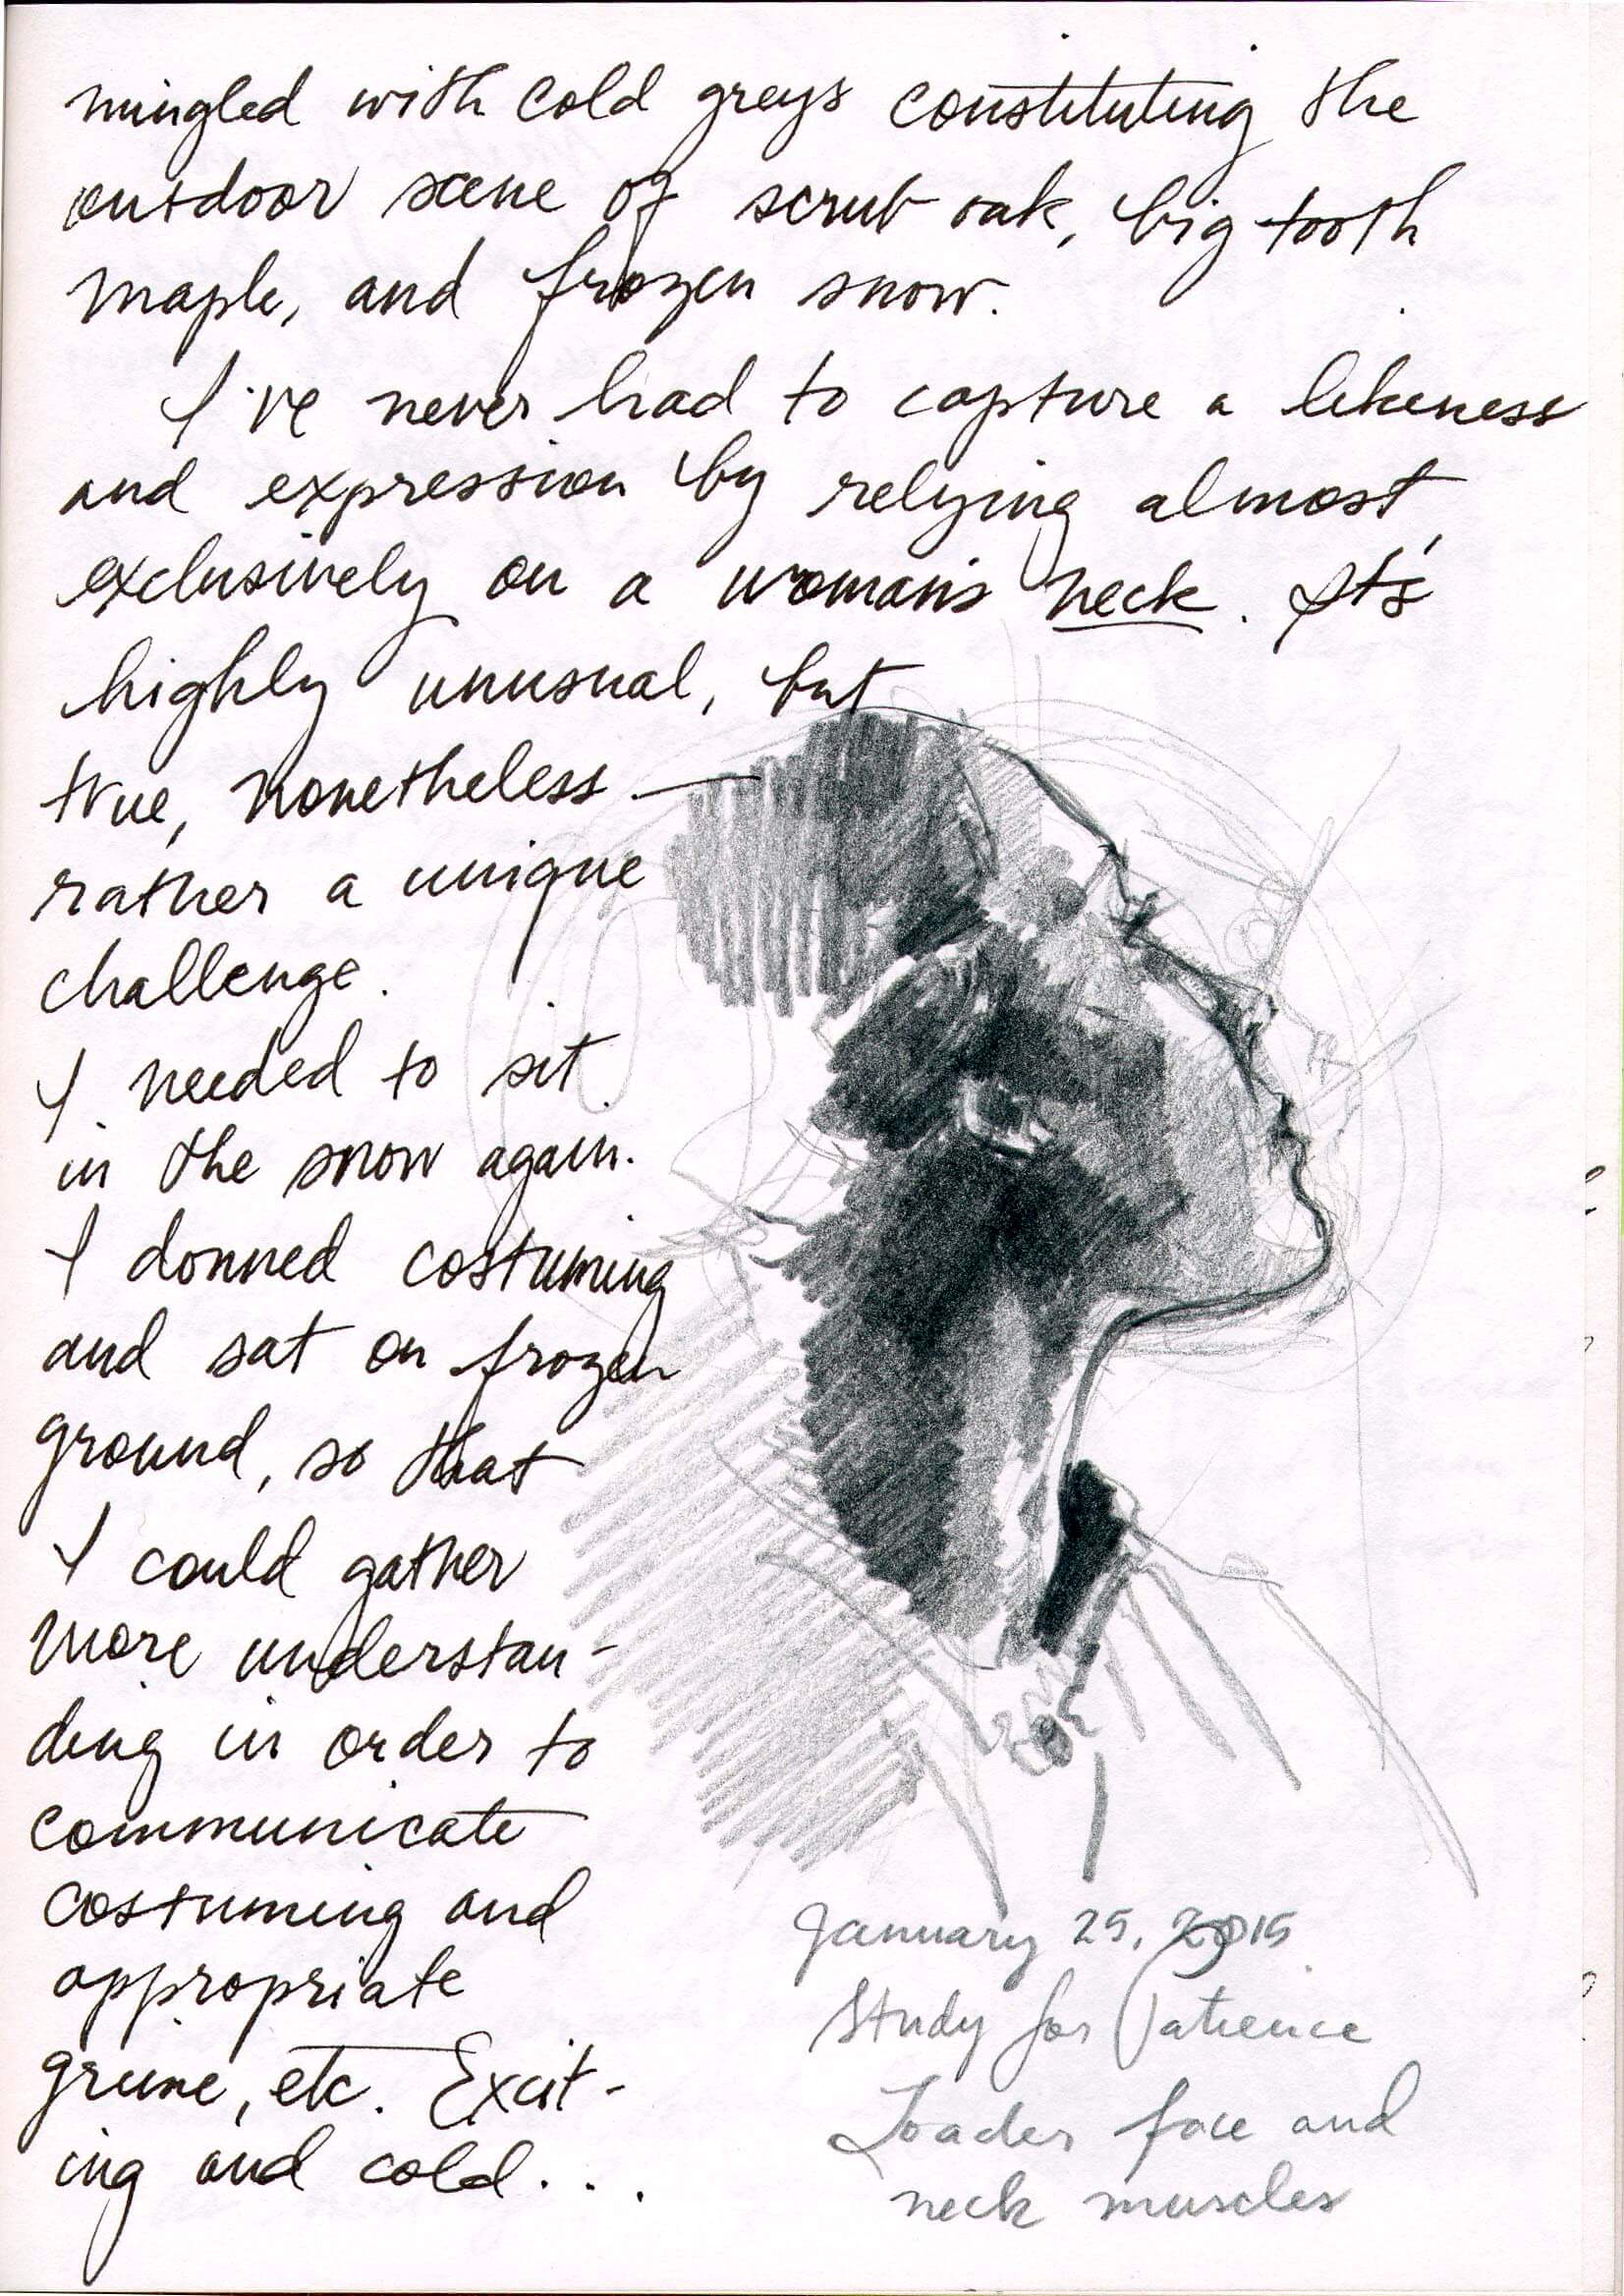 mingled with cold greys constituting the
outdoor scene of scrub oak, big tooth
maple, and frozen snow.
I've never had to capture a likeness
and expression by relying almost
exclusively on a woman's neck. It's
highly unusual, but
true, nonetheless —
rather a unique
challenge.
I needed to sit
in the snow again.
I donned costuming
and sat on frozen
ground, so that
I could gather
more understan-
ding in order to
communicate
costuming and
appropriate
grime, etc. Excit-
ing and cold...
January 25, 2015
Study for Patience
Loader face and
neck muscles